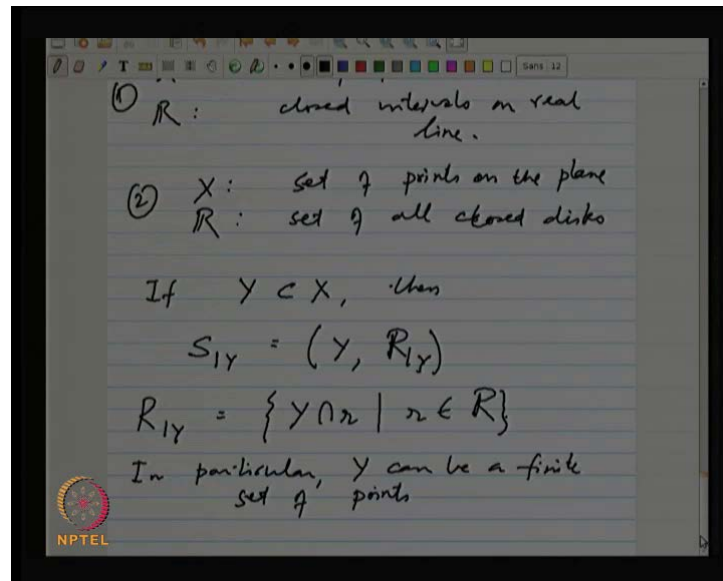 Sans 12
① ℝ : closed intervals on real
line.
② X : set of points on the plane
ℝ : set of all closed disks
If Y ⊂ X, then
S|Y = (Y, R|Y)
R|Y = { Y ∩ r | r ∈ R }
In particular, Y can be a finite
set of points
NPTEL